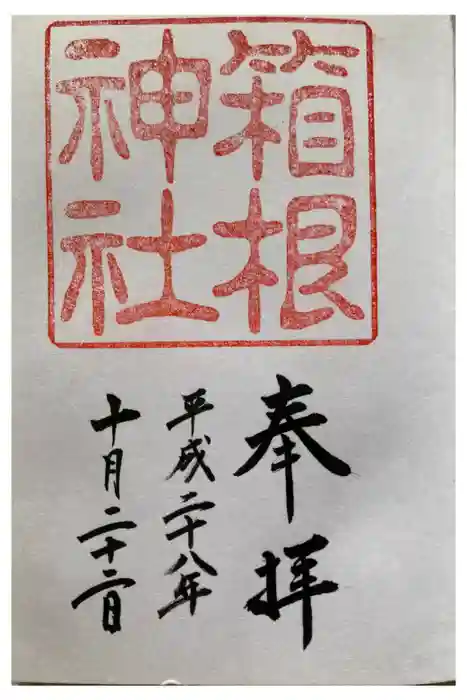 箱根
神社
奉拝
平成二十八年
十月二十二日